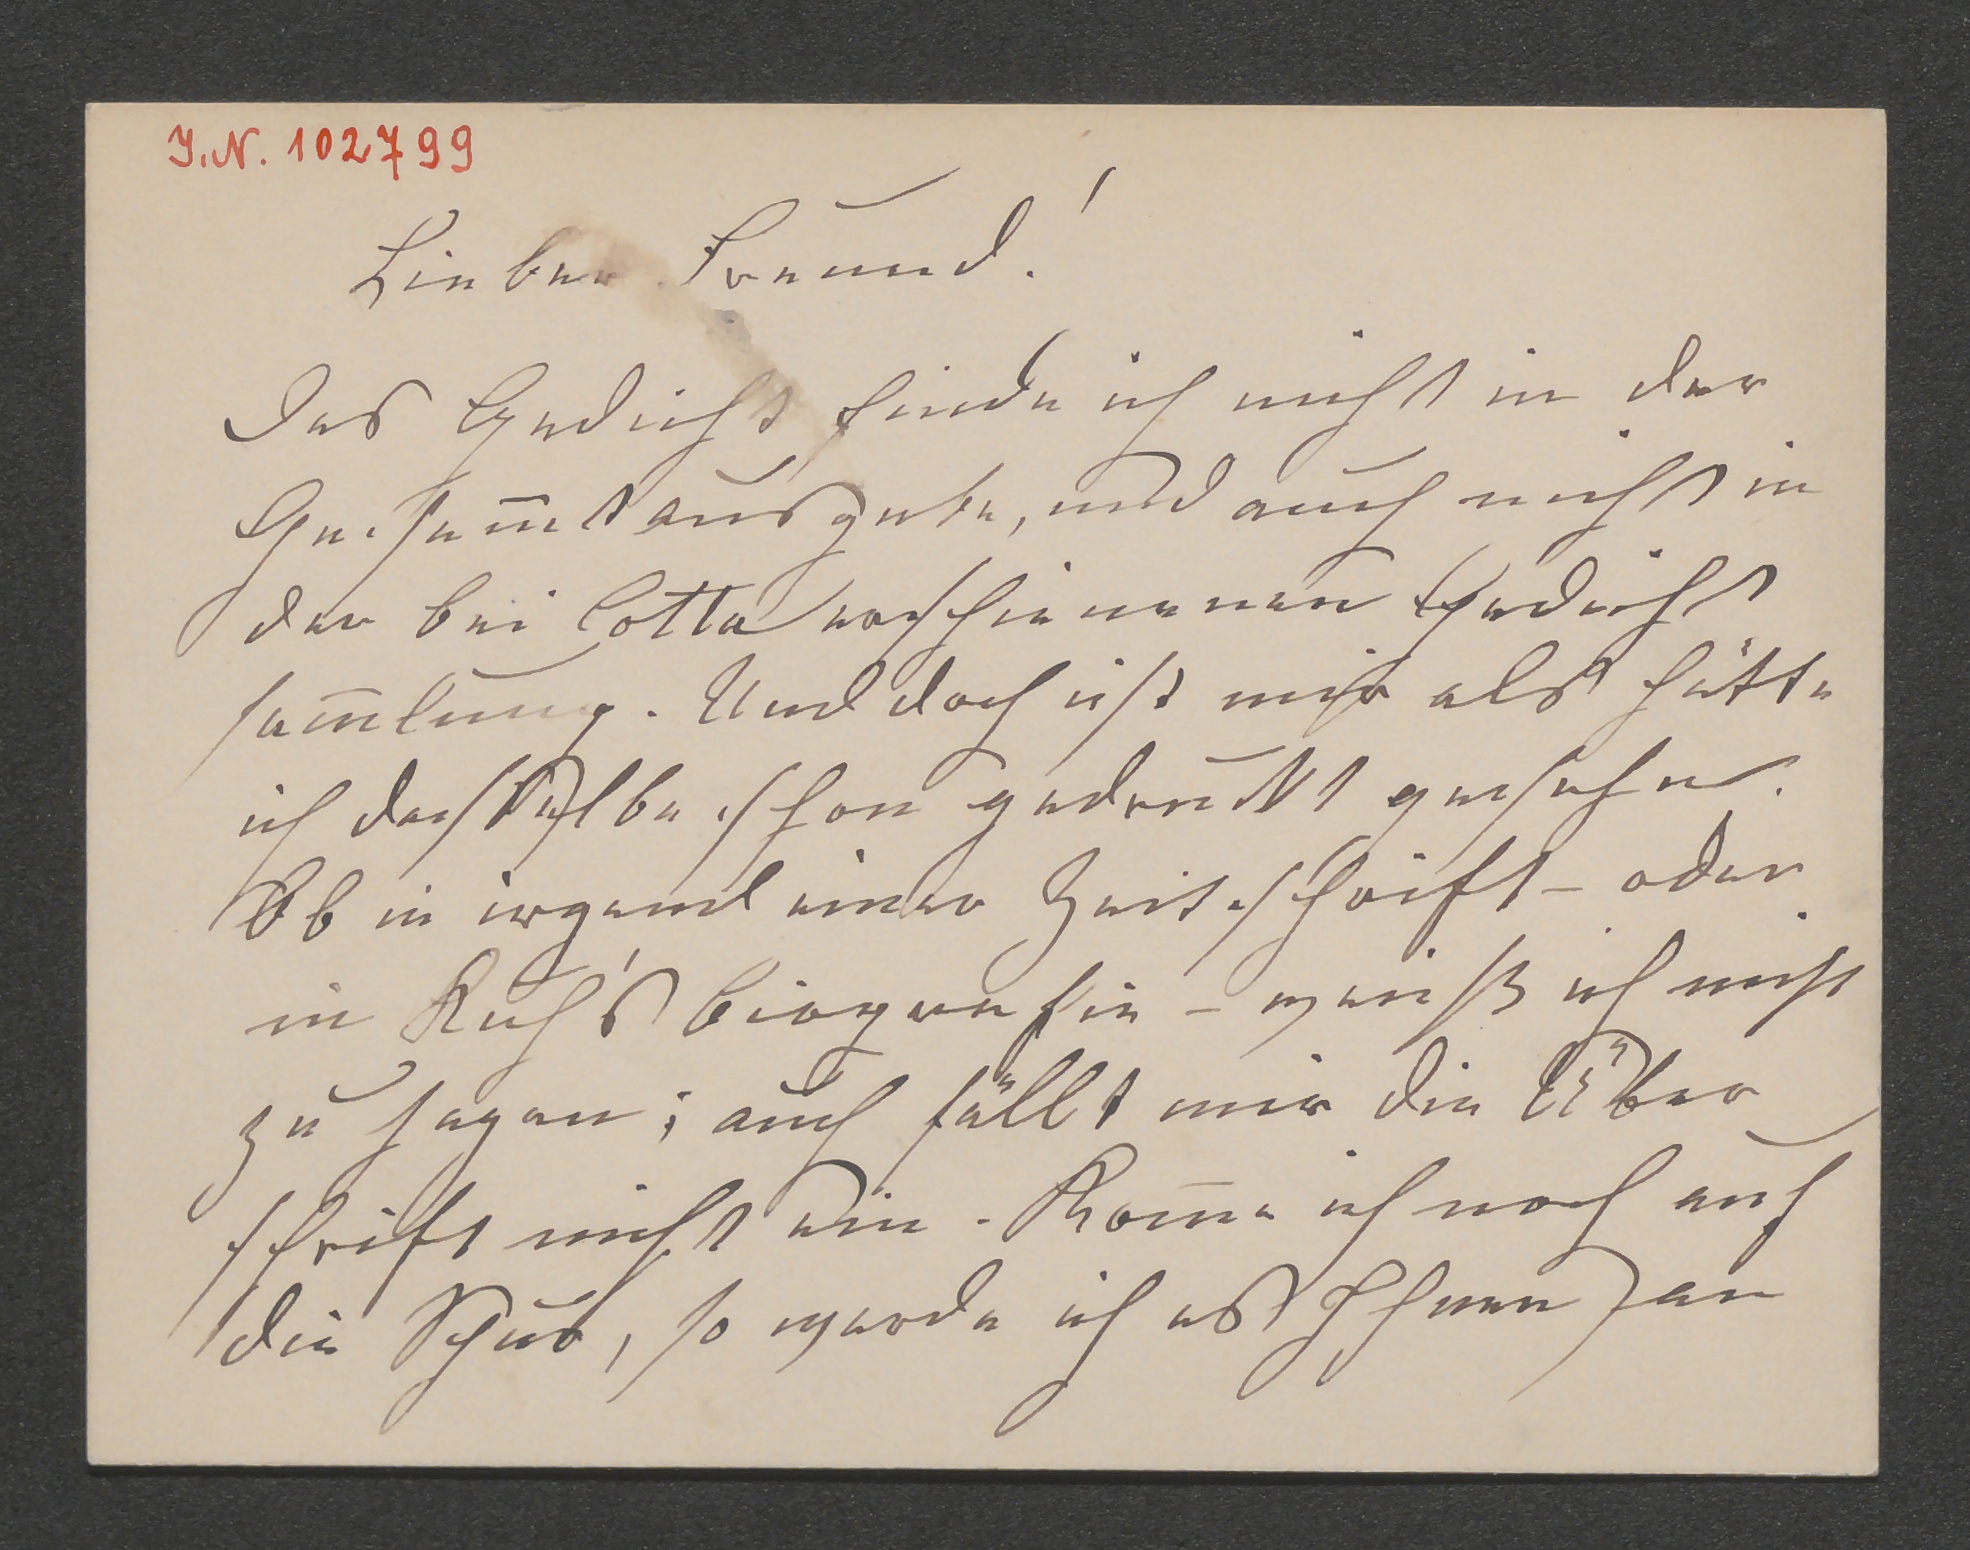 I.N. 102799
Lieber Freund!
Das Gedicht finde ich nicht in der
Gesam̅tausgabe, und auch nicht in
der bei Cotta erschienenen Gedicht
sam̅lung. Und doch ist mir als hätte
ich dasselbe schon gedruckt gesehen.
Ob in irgend einer Zeitschrift – oder
in Kuh's Biografie – weiß ich nicht
zu sagen; auch fällt mir die Über
schrift nicht ein. Kom̅e ich noch auf
die Spur, so werde ich es Ihnen an